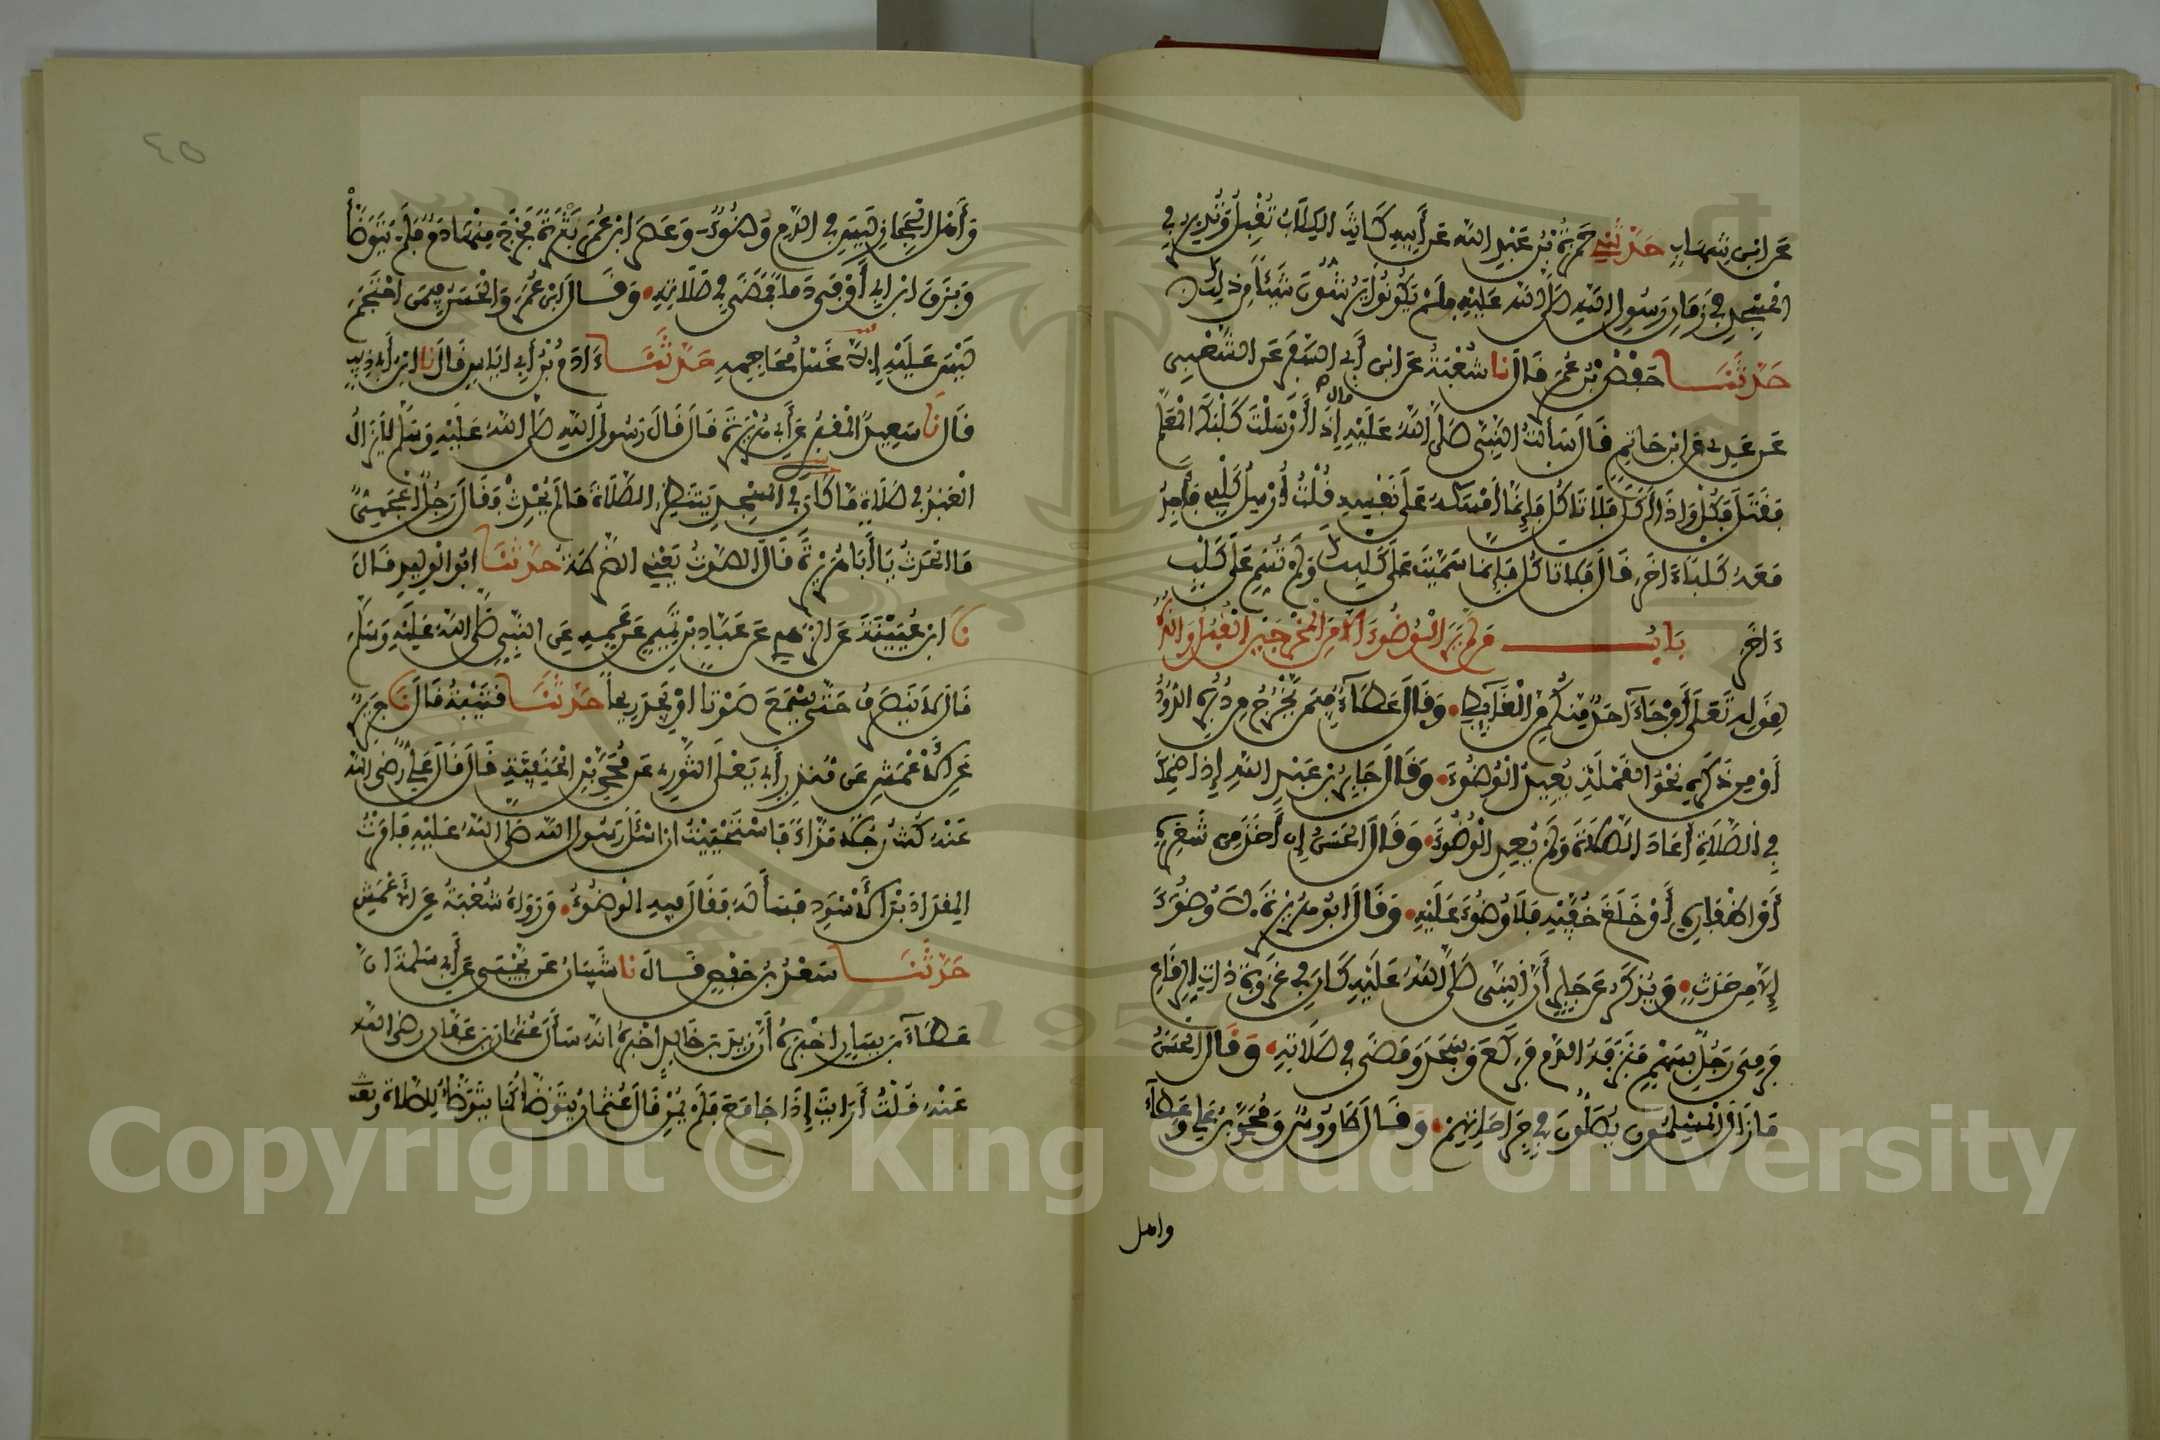 عن ابن شهاب حدثني حمزة بن عبد الله عن أبيه كانت الكلاب تقبل وتدبر في
المسجد في زمان رسول الله صلى الله عليه فلم يكونوا يرشون شيئا من ذلك
حدثنا حفص بن عمر قال نا شعبة عن ابن أبي السفر عن الشعبي
عن عدي بن حاتم قال سألت النبي صلى الله عليه قال إذا أرسلت كلبك المعلم
فقتل فكل وإذا أكل فلا تأكل فإنما أمسكه على نفسه قلت أرسل كلبي فأجد
معه كلبا ءاخر قال فلا تأكل فإنما سميت على كلبك ولم تسم على كلب
ءاخر باب من لم ير الوضوء الا من المخرجين القبل والدبر
لقوله تعلى أو جاء احد منكم من الغايط وقال عطاء فيمن يخرج من دبره الدود
أو من ذكره نحو القملة يعيد الوضوء وقال جابر بن عبد الله إذا ضحك
في الصلاة أعاد الصلاة ولم يعد الوضوء وقال الحسن إن أخذ من شعره
أو اظفاره أو خلع خفيه فلا وضوء عليه وقال ابو هريرة لا وضوء
إلا من حدث ويذكر عن جابر أن النبي صلى الله عليه كان في غزوة ذات الرقاع
فرمي رجل بسهم فنزفه الدم فركع وسجد ومضى في صلاته وقال الحسن
ما زال المسلمون يصلون في جراحاتهم وقال طاووس ومحمد بن علي وعطاء
واهل
٤٥
وأهل الحجاز ليس في الدم وضوء وعصر ابن عمر بثرة فخرج منها دم فلم يتوضأ
وبزق ابن ابي أوفى دما فمضى في صلاته وقال ابن عمر والحسن فيمن احتجم
ليس عليه إلا غسل محاجمه حدثنا ءادم بن أبي اياس قال نا ابن أبي ذيب
قال نا سعيد المقبري عن أبي هريرة قال قال رسول الله صلى الله عليه وسلم لا يزال
العبد في صلاة ما كان في المسجد ينتظر الصلاة ما لم يحدث وقال رجل أعجمي
ما الحدث يا أبا هريرة قال الصوت يعني الضرطة حدثنا ابو الوليد قال
نا ابن عيينة عن الزهري عن عباد بن تميم عن عمه عن النبي صلى الله عليه وسلم
قال لا ينصرف حتى يسمع صوتا او يجد ريحا حدثنا قتيبة قال نا جرير
عن الأعمش عن منذر أبي يعلى الثوري عن محمد بن الحنفية قال قال علي رضي الله
عنه كنت رجلا مذاء فاستحييت ان اسئل رسول الله صلى الله عليه فامرت
المقداد بن الأسود فسأله فقال فيه الوضوء ورواه شعبة عن الأعمش
حدثنا سعد بن حفص قال نا شيبان عن يحيى عن أبي سلمة ان
عطاء بن يسار اخبره أن زيد بن خالد اخبره انه سأل عثمان بن عفان رضي الله
عنه قلت أرايت إذا جامع فلم يمن قال عثمان يتوضأ كما يتوضأ للصلاة ويغسل
Copyright © King Saud University